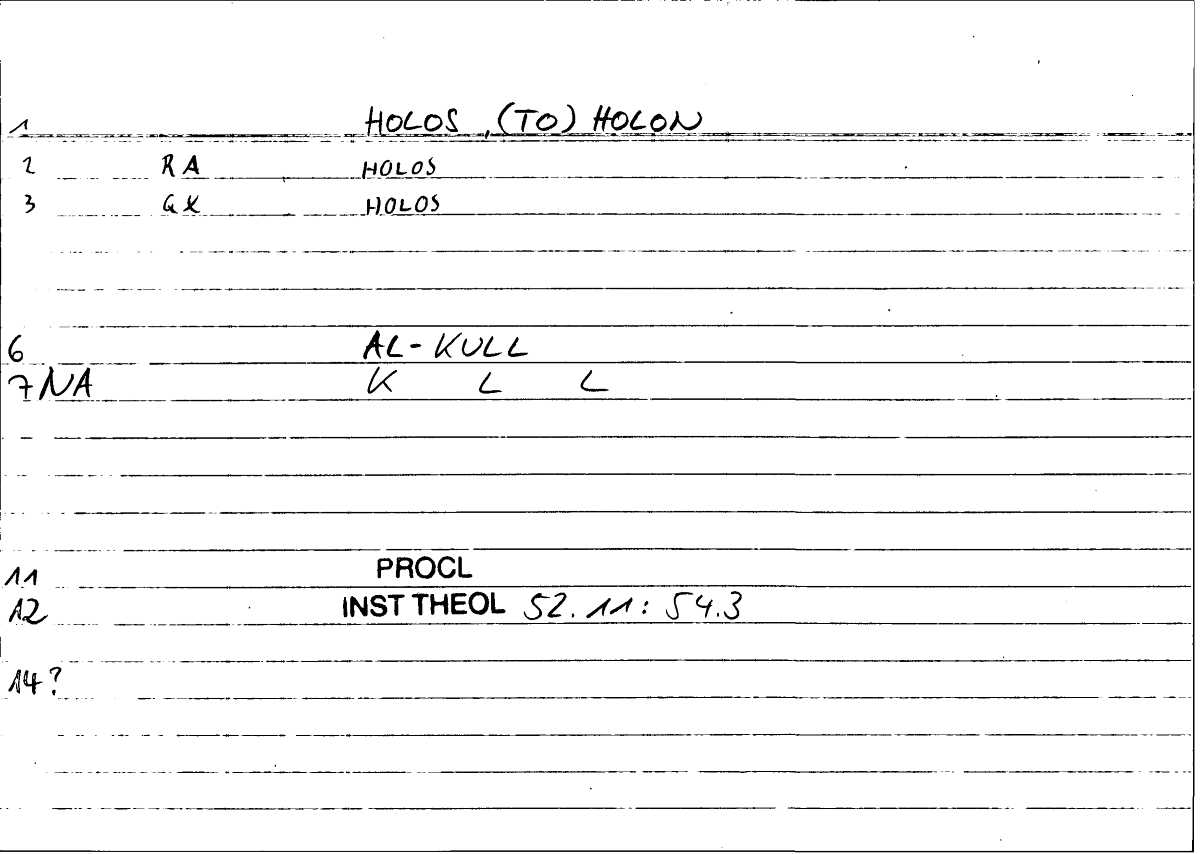 1 HOLOS, (TO) HOLON
2 RA HOLOS
3 GX HOLOS
6 AL-KULL
7 NA K L L
11 PROCL
12 INST THEOL 52.11: 54.3
14?